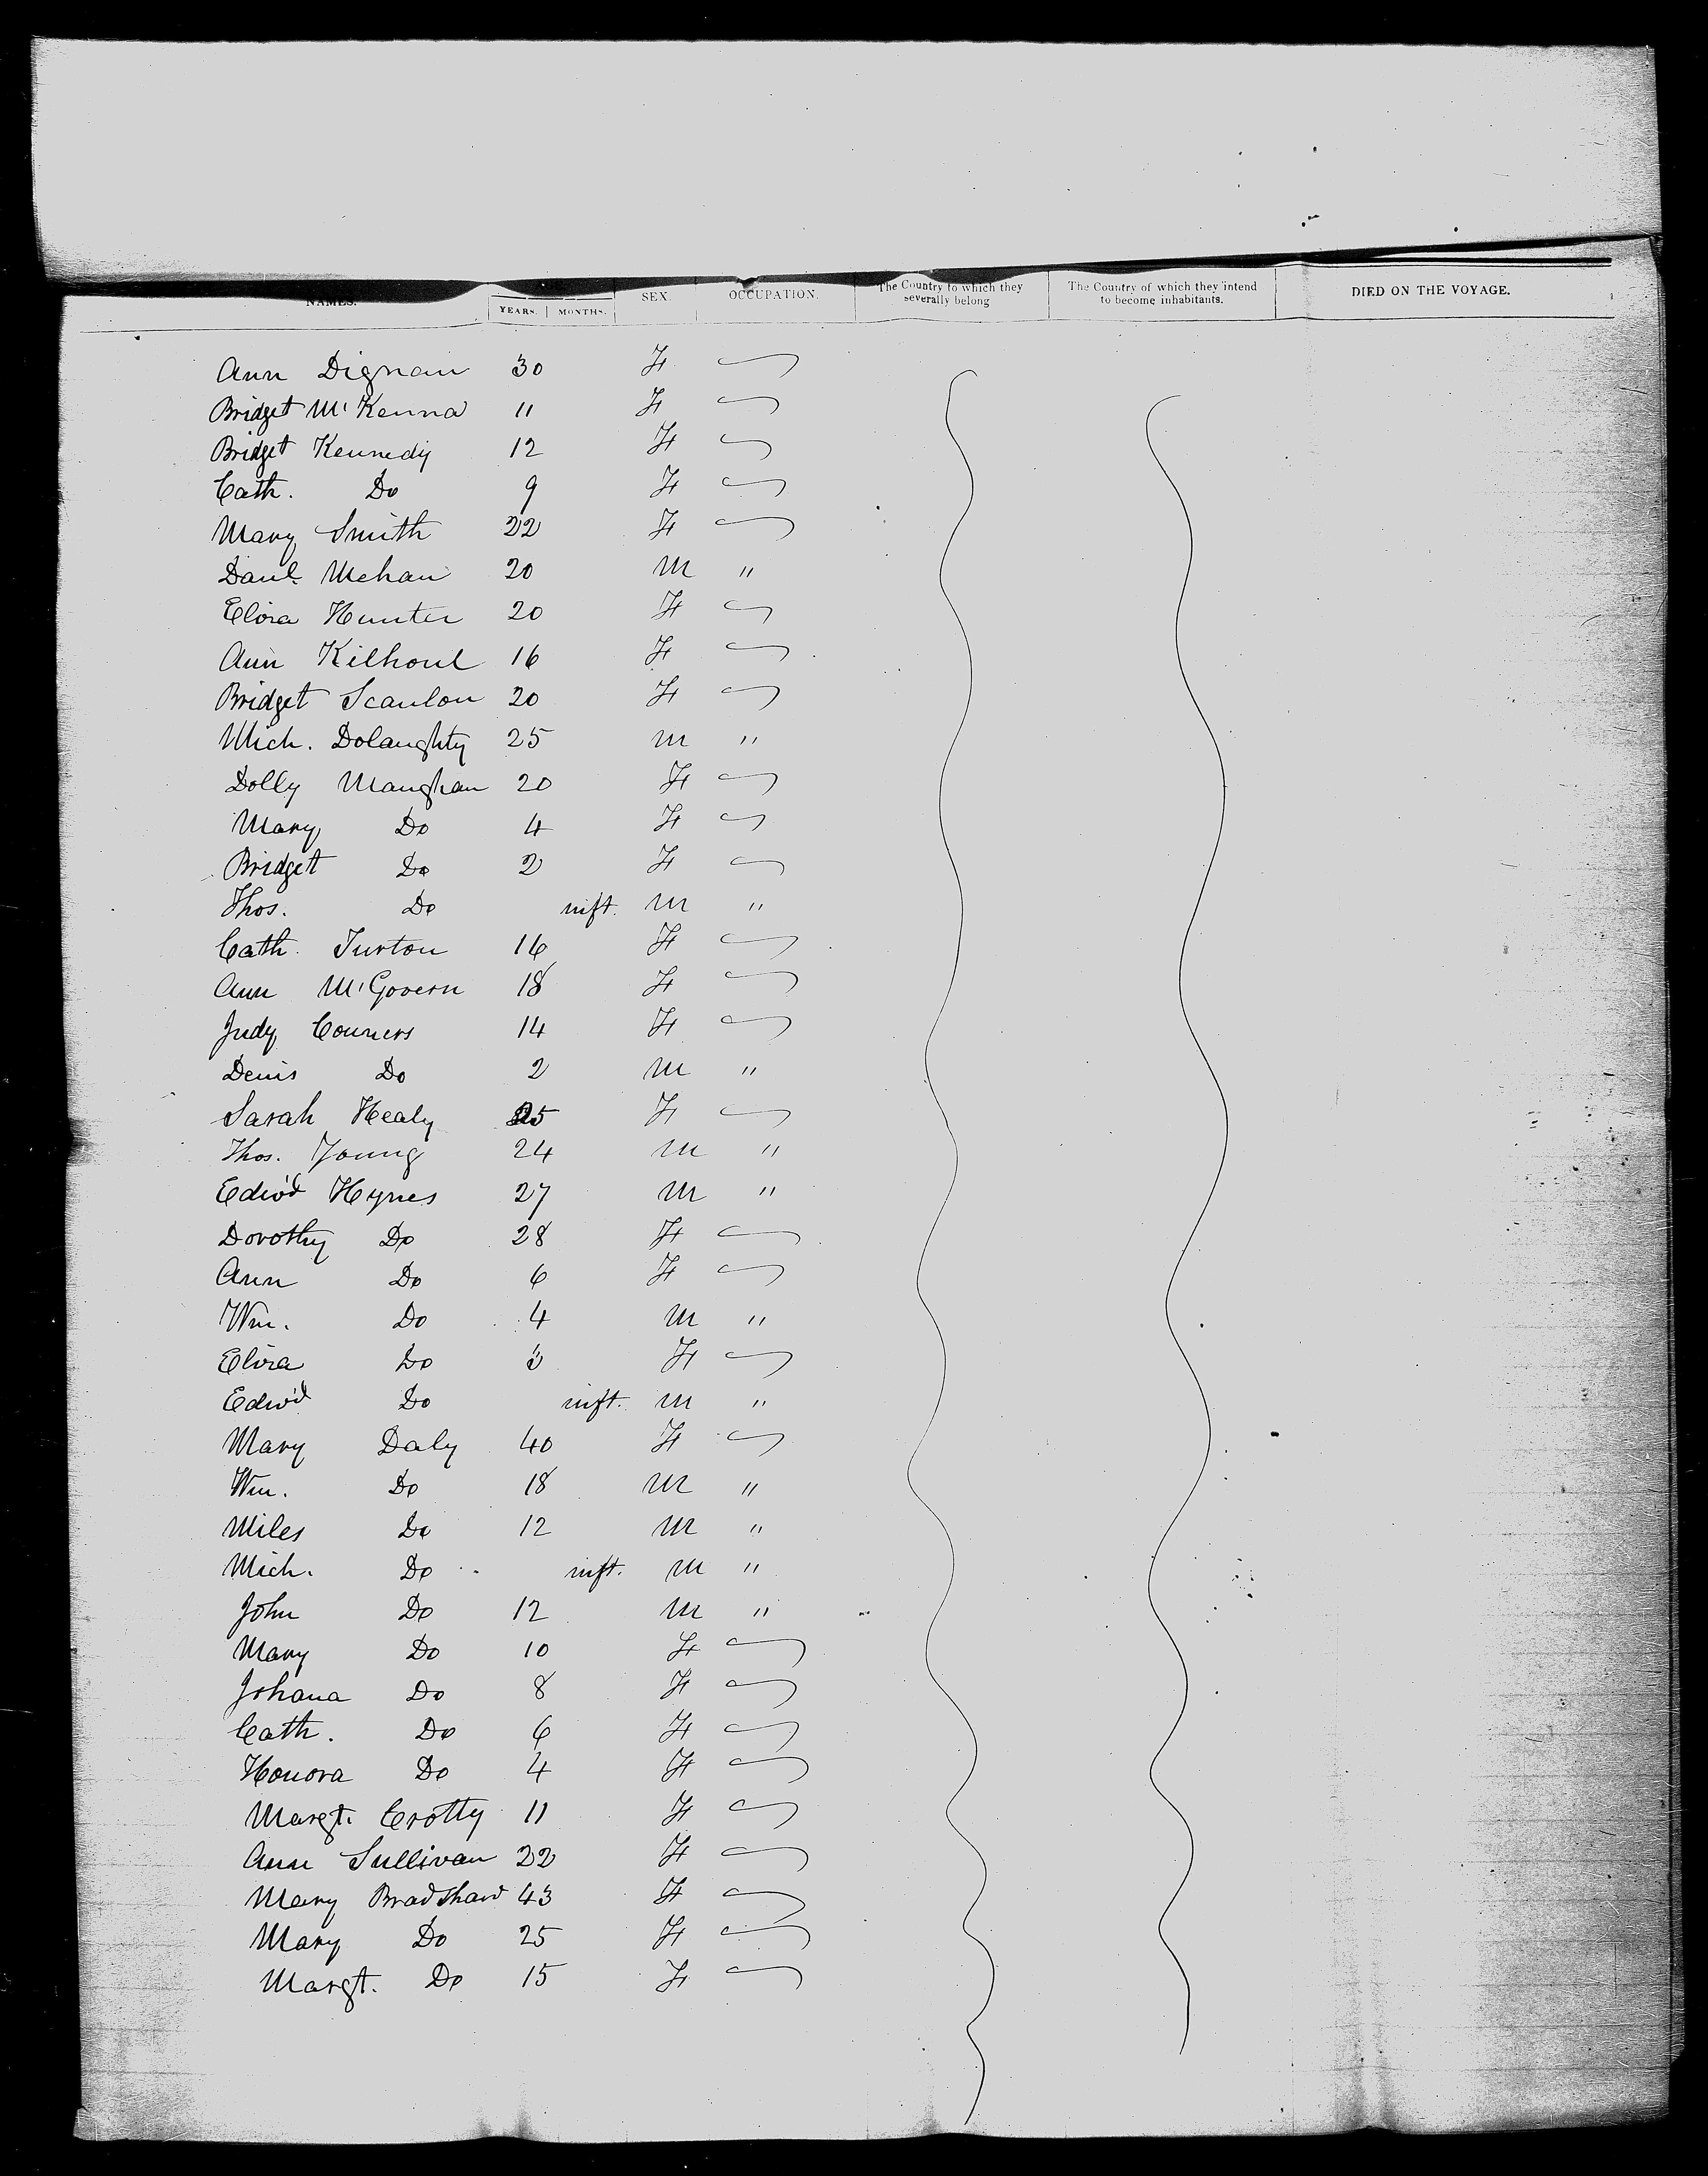 NAMES. YEARS. MONTHS. SEX. OCCUPATION. The Country to which they severally belong The Country of which they intend to become inhabitants. DIED ON THE VOYAGE.
Ann Dignan 30 F
Bridget McKenna 11 F
Bridget Kennedy 12 F
Cath. Do 9 F
Mary Smith 22 F
Danl. Mehan 20 M "
Eliza Hunter 20 F
Ann Kilhoul 16 F
Bridget Scanlon 20 F
Mich. Dolaughty 25 M "
Dolly Maughan 20 F
Mary Do 4 F
Bridget Do 2 F
Thos. Do inft. M "
Cath. Turton 16 F
Ann McGovern 18 F
Judy Conners 14 F
Denis Do 2 M "
Sarah Healy 25 F
Thos. Young 24 M "
Edwd Hynes 27 M "
Dorothy Do 28 F
Ann Do 6 F
Wm. Do 4 M "
Eliza Do 3 F
Edwd Do inft. M "
Mary Daly 40 F
Wm. Do 18 M "
Miles Do 12 M "
Mich. Do inft. M "
John Do 12 M "
Mary Do 10 F
Johana Do 8 F
Cath. Do 6 F
Honora Do 4 F
Margt. Crotty 11 F
Ann Sullivan 22 F
Mary Bradshaw 43 F
Mary Do 25 F
Margt. Do 15 F